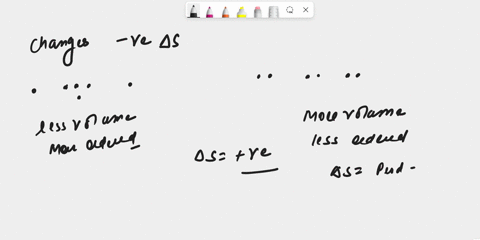 changes -ve ΔS
less volume
More ordered
More volume
less ordered
ΔS = +ve
ΔS = Pud -